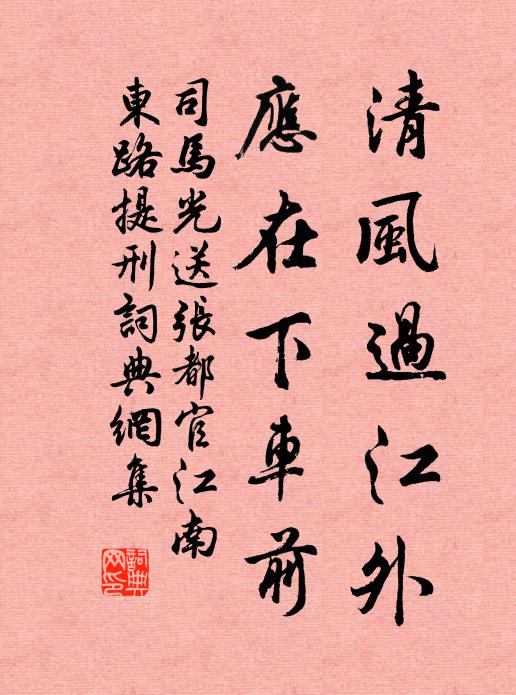 清風過江外
應在下車前
司馬光送張都官江南
東路提刑詞典網集
詞典網印